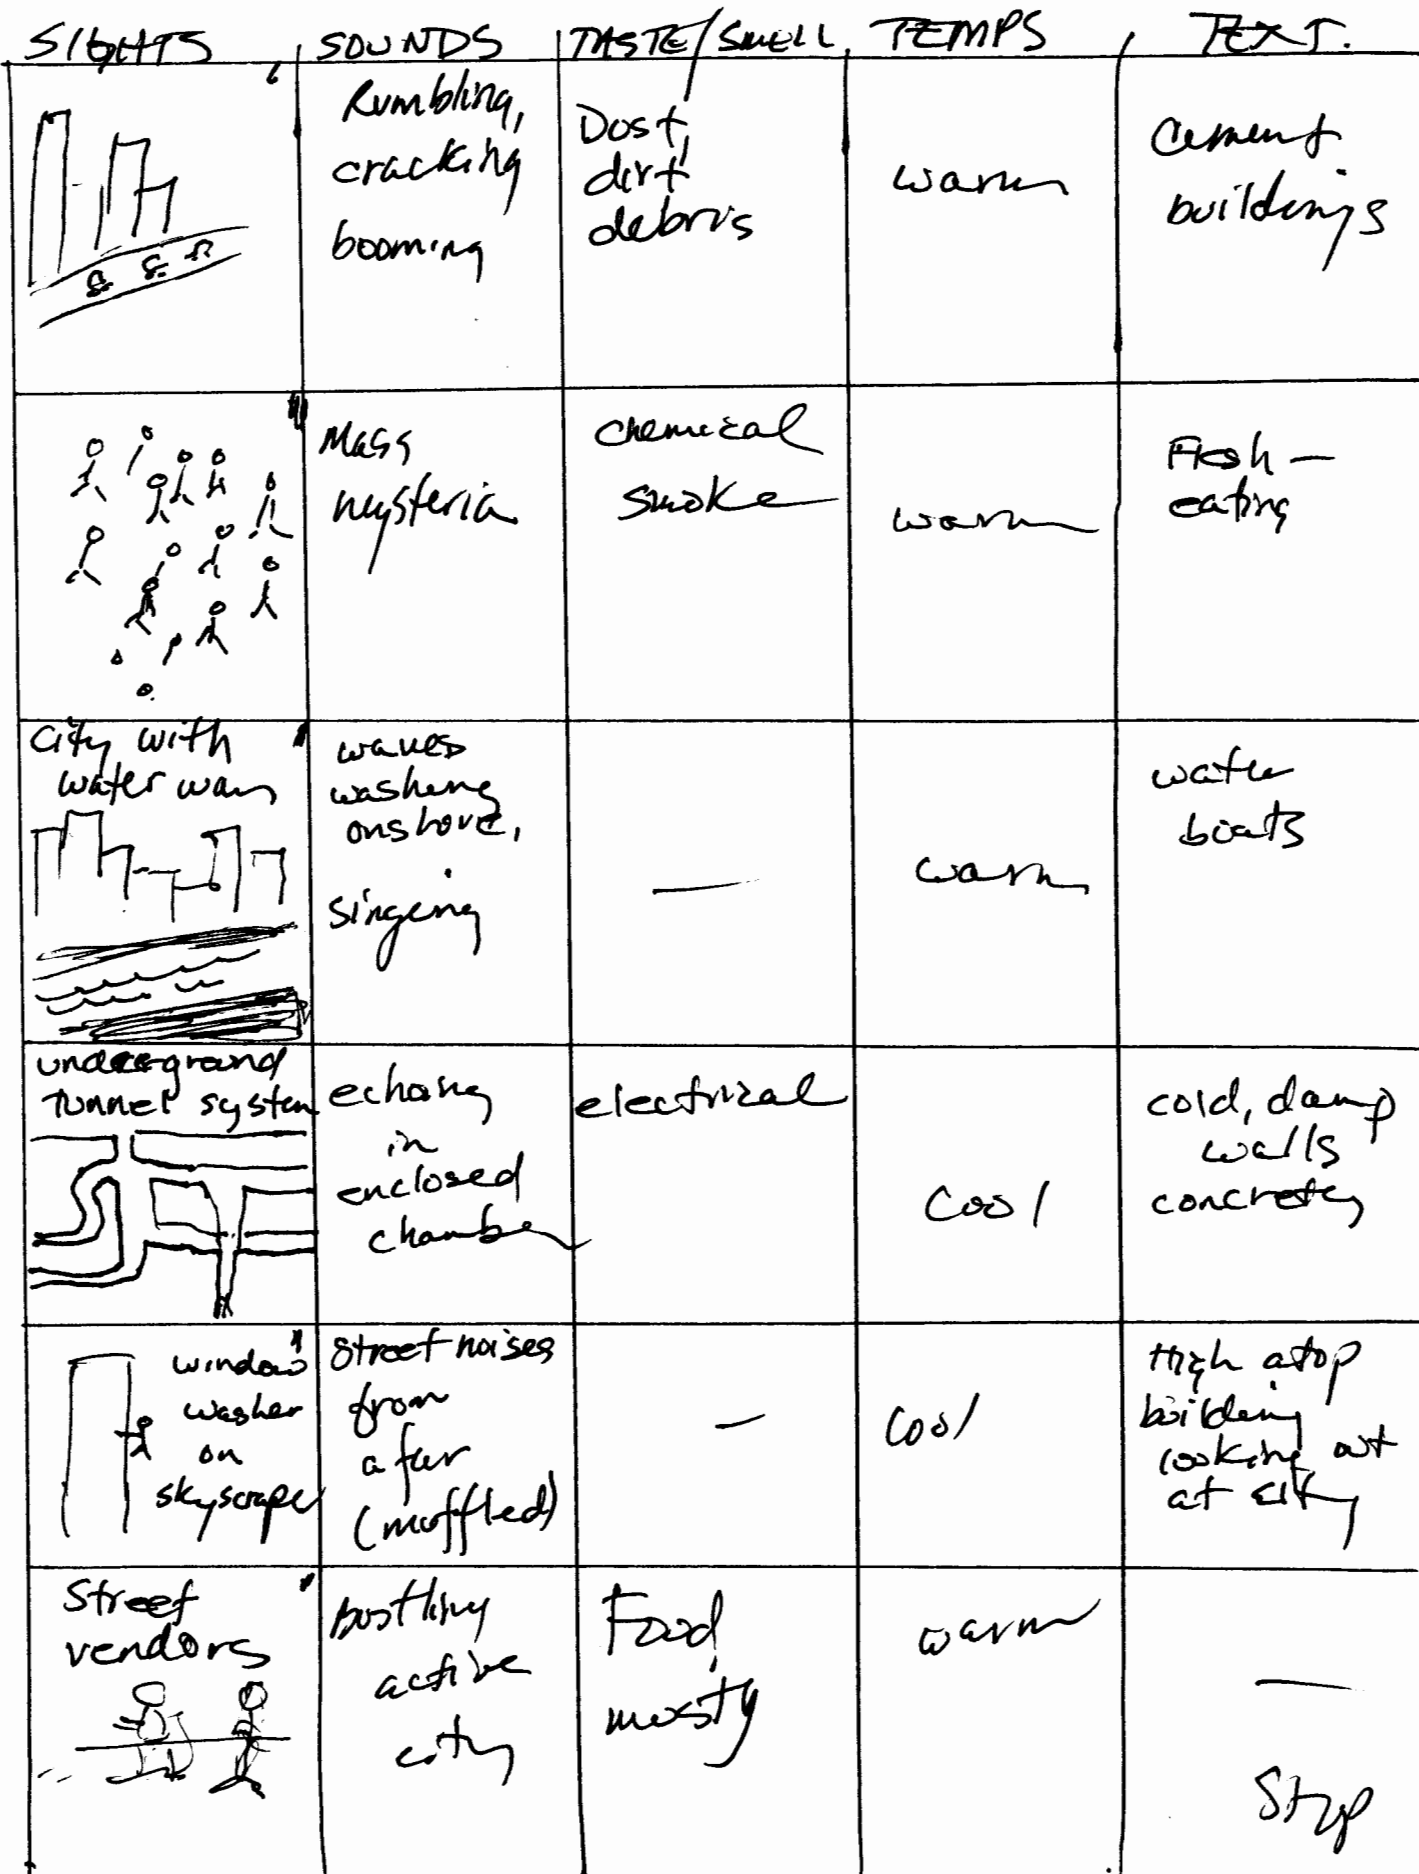 SIGHTS SOUNDS TASTE/SMELL TEMPS TEXT.
Rumbling,
cracking
booming
Dust,
dirt
debris
warm
Cement
buildings
Mass
hysteria
chemical
smoke
warm
Flesh-
eating
City with
water way
waves
washing
onshore,
singing
—
warm
water
boats
underground
tunnel system
echoing
in
enclosed
chamber
electrical
cool
cold, damp
walls
concrete,
window
washer
on
skyscraper
street noises
from
afar
(muffled)
—
cool
High atop
building
looking out
at city
Street
vendors
Bustling
active
city
Food,
musty
warm
—
Stop